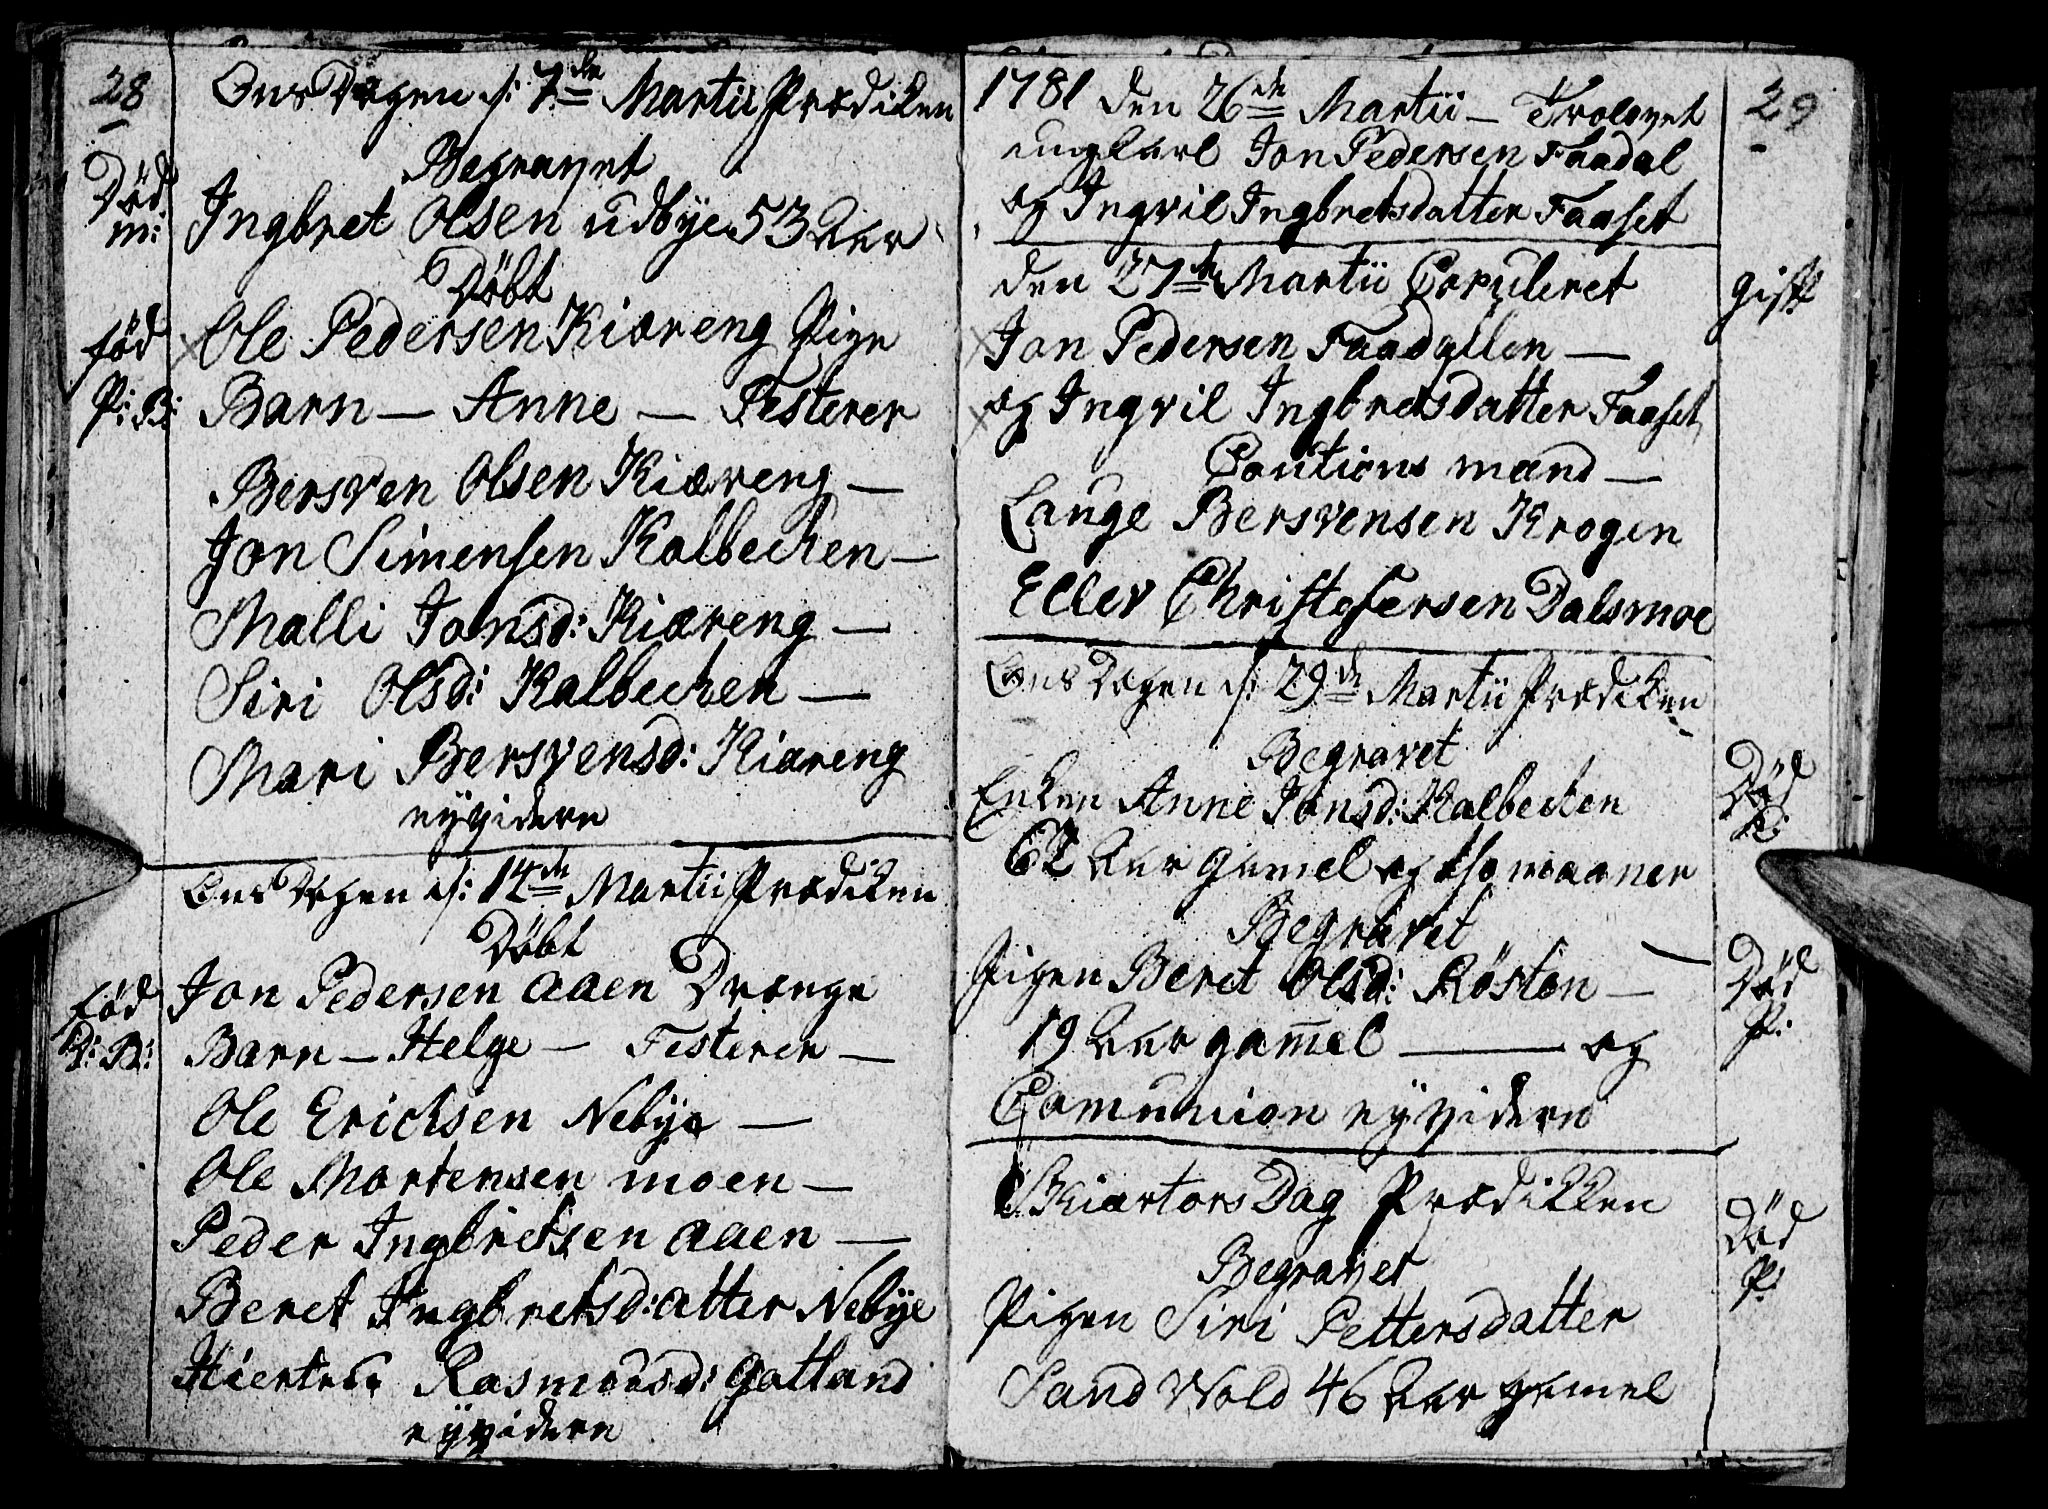 28
OnsDagen d: 7de Martii Prædiken
Begravet
Død
m:
Ingbret Olsen udbye 53 Aar
Döbt
född
P: B:
Ole Pedersen Kiæreng Pige
Barn — Anne — Festerer
Bersven Olsen Kiæreng —
Jon Simensen Kalbecken —
Malli Jonsd: Kiæreng —
Siri Olsd: Kalbecken —
Mari Bersvensd: Kiæreng
OnsDagen d: 14de Martii Prædiken
Döbt
född
D: B:
Jon Pedersen Aaen Drenge
Barn — Helge — Festerer —
Ole Ericksen Nebye —
Ole Mortensen moen —
Peder Ingbretsen Aaen —
Beret Ingbretsd:atter Nebye
Rasmousd: Gotland
1781 den 26de Martii — Trolovet
29
ungkarl Jon Pedersen Faadal
og Ingvil Ingbretsdatter Faaset
den 27de Martii Copuleret
gift
Jon Pedersen Faadallen —
og Ingvil Ingbretsdatter Faaset
Cautions mænd —
Lauge Bersvensen Krogen
Eller Christofersen Dalsmoe
OnsDagen d: 29de Martii Prædiken
Begravet
Død
Enken Anne Jonsd: Kalbecken
Aar gamel og maaner
Begravet
Død
P:
Pigen Beret Olsd: Röston —
19 Aar gam̄el — og
Comunion
SkiærtorsDag Prædikken
Begravet
Død
P:
Pigen Siri Pettersdatter
Sand Wold 46 Aar gamel